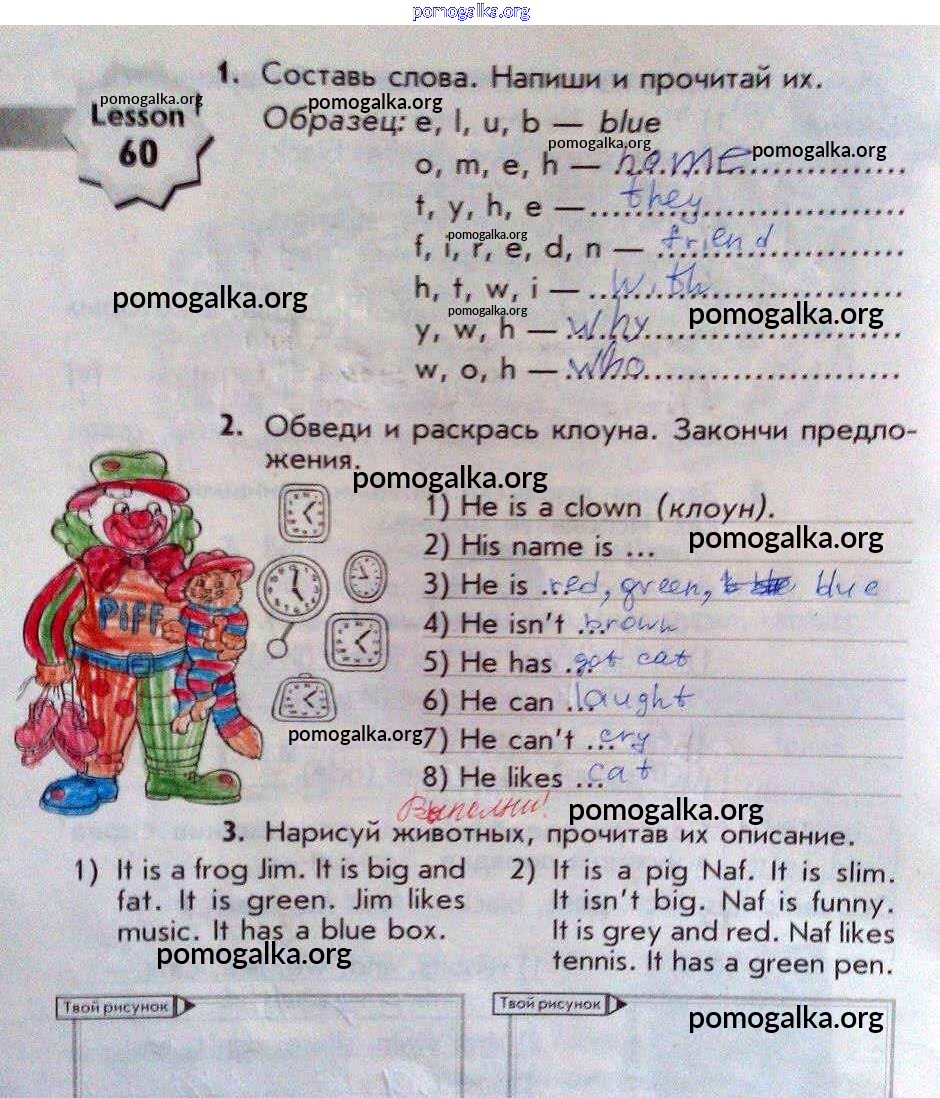 pomogalka.org
1. Составь слова. Напиши и прочитай их.
pomogalka.org
Lesson
60
pomogalka.org
Образец: e, l, u, b — blue
pomogalka.org
pomogalka.org
o, m, e, h — home
t, y, h, e — they
pomogalka.org
f, i, r, e, d, n — friend
pomogalka.org
h, t, w, i — with
pomogalka.org
pomogalka.org
y, w, h — why
w, o, h — who
2. Обведи и раскрась клоуна. Закончи предло-
жения.
pomogalka.org
1) He is a clown (клоун).
2) His name is ...
pomogalka.org
3) He is ...red, green, blue
PIFF
4) He isn't ...brown
5) He has ...got cat
6) He can ...laught
pomogalka.org
7) He can't ...cry
8) He likes ...cat
Выполни!
pomogalka.org
3. Нарисуй животных, прочитав их описание.
1) It is a frog Jim. It is big and
fat. It is green. Jim likes
music. It has a blue box.
pomogalka.org
2) It is a pig Naf. It is slim.
It isn't big. Naf is funny.
It is grey and red. Naf likes
tennis. It has a green pen.
Твой рисунок
Твой рисунок
pomogalka.org